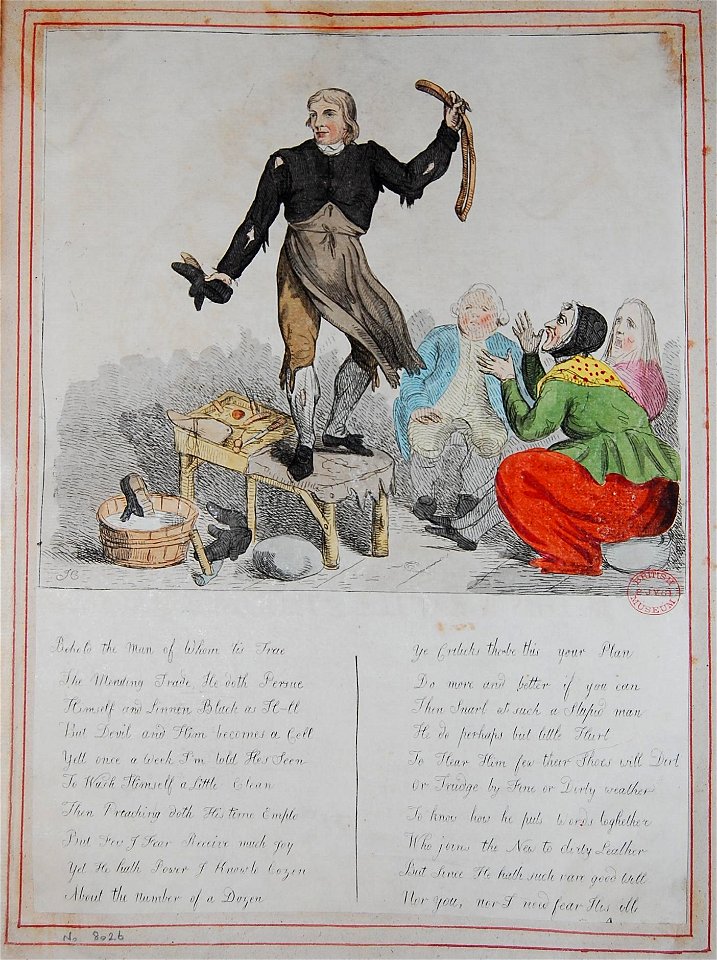 JC
BRITISH
MUSEUM
Behold the man of Whom tis True
The Mending Trade He doth Persue
Himself and Linnen Black as H-ll
But Devil and Him becomes a Cell
Yett once a Week I'm told Hes Seen
To Wash Himself a Little Clean
Then Preaching doth His time Emplo
But Few I Fear Receive much Joy
Yet He hath Power I Know to Cozen
About the number of a Dozen
Ye Criticks tho be this your Plan
Do more and better if you can
Then Snarl at such a Stupid man
He do perhaps but little Hurt
To Hear Him few their Shoes will Dirt
Or Trudge by Fine or Dirty weather
To know how he puts words together
Who joins the New to dirty Leather
But Since He hath such rare good Will
Nor you, nor I need fear His
No. 8026